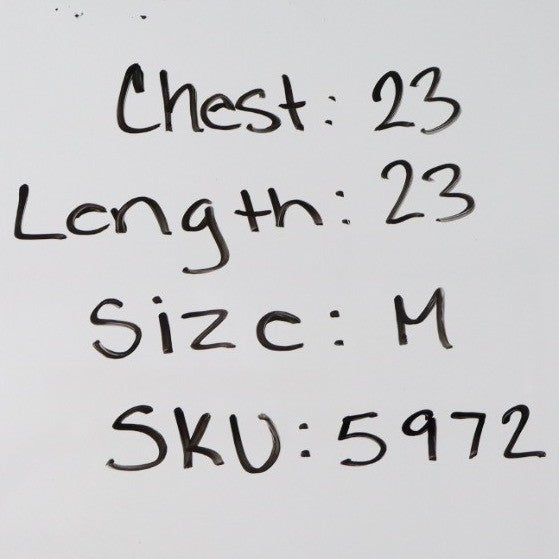 Chest: 23
Length: 23
Size: M
SKU: 5972